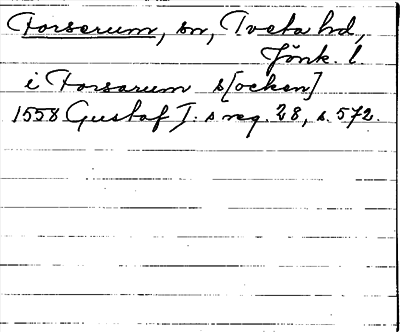 Forserum, sn, Tveta hd,
Jönk. l
i Forsarum s[ocken]
1558 Gustaf I. s reg. 28, s. 572.